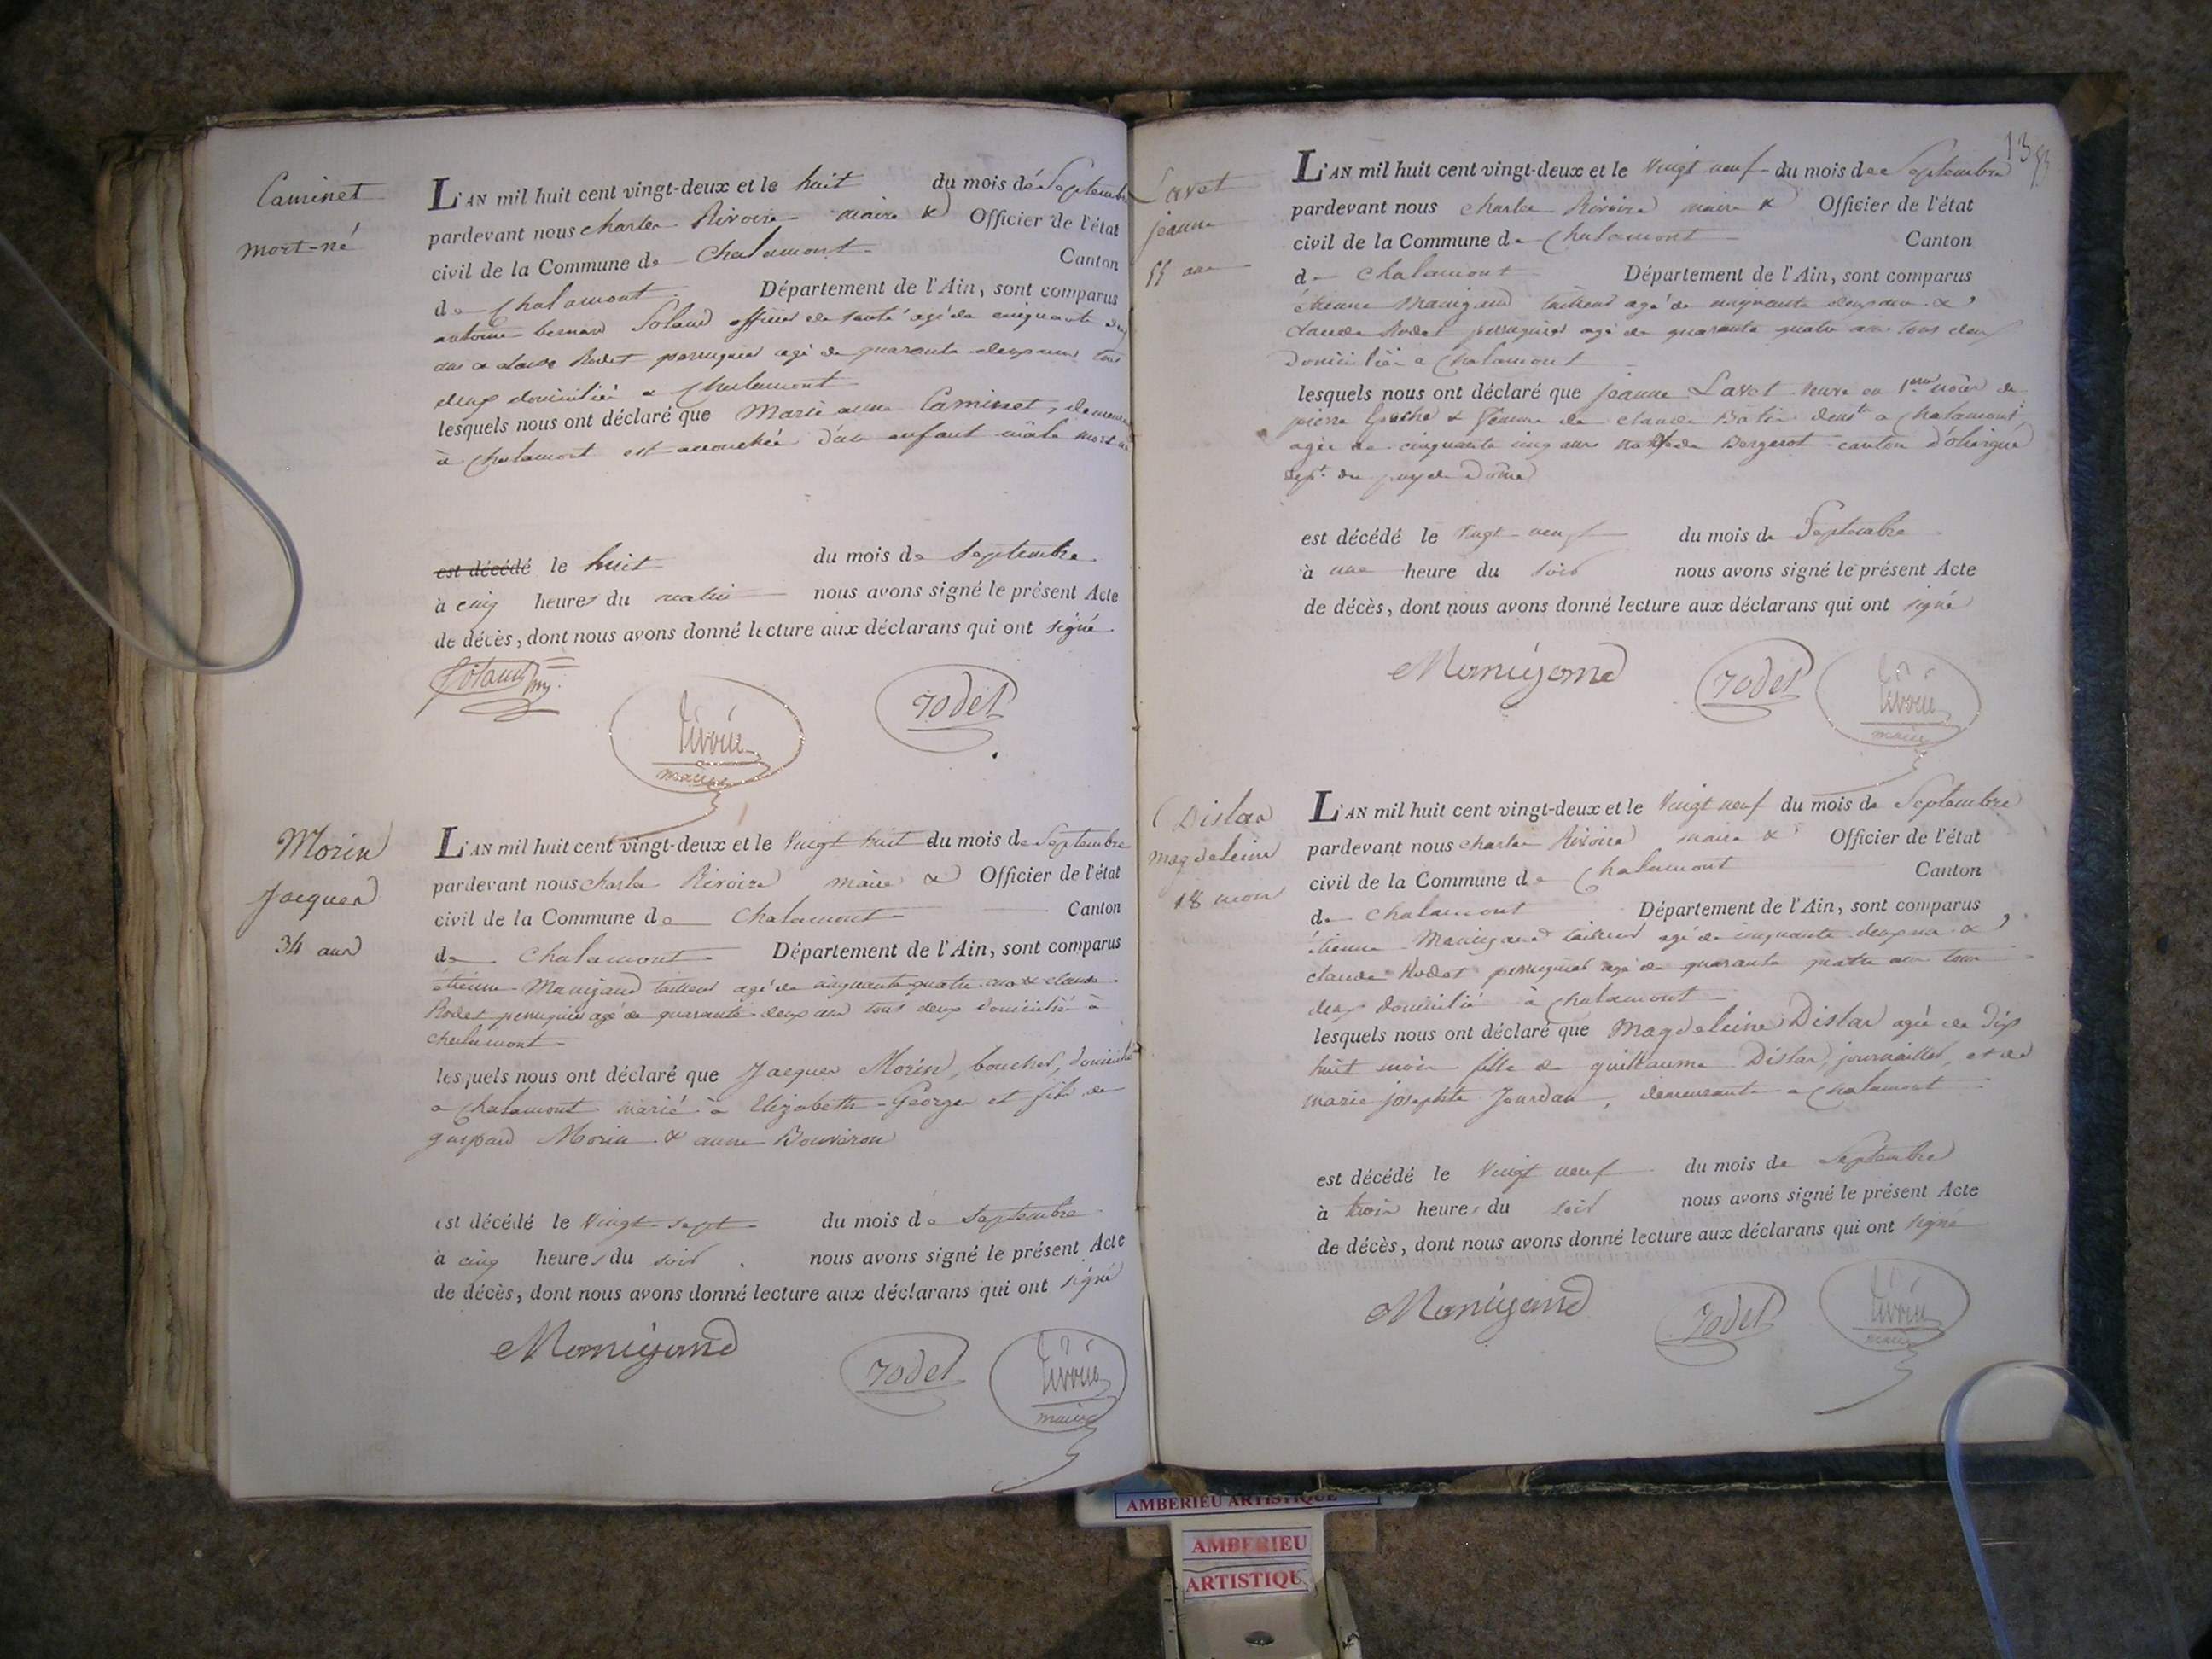 Caminet
mort-né
L'AN mil huit cent vingt-deux et le huit du mois de Septembre
pardevant nous charles Rivoire maire & Officier de l'état
civil de la Commune de Chalamont Canton
de Chalamont Département de l'Ain, sont comparus
antoine bernard Soland officier de santé agé de cinquante
ans & claude Rodet perruquier agé de quarante deux ans tous
deux domiciliés a Chalamont
lesquels nous ont déclaré que Marie anne Caminet,
à Chalamont est accouchée d'un enfant mâle mort né
est décédé le huit du mois de Septembre
à cinq heures du matin nous avons signé le présent Acte
de décès, dont nous avons donné lecture aux déclarans qui ont signé
rodet
rivoire
maire
Morin
Jacques
34 ans
L'AN mil huit cent vingt-deux et le Vingt huit du mois de Septembre
pardevant nous charles Rivoire maire & Officier de l'état
civil de la Commune de Chalamont Canton
de Chalamont Département de l'Ain, sont comparus
étienne Manigand tailleur agé de cinquante quatre ans & claude
Rodet perruquier agé de quarante deux ans tous deux domiciliés à
chalamont
lesquels nous ont déclaré que Jacques Morin, boucher, domicilié
a Chalamont marié à Elizabeth George et fils de
gaspard Morin & anne Bouvéron
est décédé le Vingt-sept du mois de Septembre
à cinq heures du soir nous avons signé le présent Acte
de décès, dont nous avons donné lecture aux déclarans qui ont signé
Manigand rodet rivoire
maire
Lavet
jeanne
55 ans
L'AN mil huit cent vingt-deux et le Vingt neuf du mois de Septembre
pardevant nous charles Rivoire maire & Officier de l'état
civil de la Commune de Chalamont Canton
de Chalamont Département de l'Ain, sont comparus
étienne Manigand tailleur agé de cinquante deux ans &
claude Rodet perruquier agé de quarante quatre ans tous deux
domiciliés a Chalamont
lesquels nous ont déclaré que jeanne Lavet veuve en 1ères nôces de
pierre & femme de claude a Chalamont
agée de cinquante cinq ans canton d'oliergue
dept. du puy de Dôme
est décédé le Vingt neuf du mois de Septembre
à une heure du soir nous avons signé le présent Acte
de décès, dont nous avons donné lecture aux déclarans qui ont signé
Manigand rodet rivoire
maire
Dislar
magdeleine
18 mois
L'AN mil huit cent vingt-deux et le Vingt neuf du mois de Septembre
pardevant nous charles Rivoire maire & Officier de l'état
civil de la Commune de Chalamont Canton
de Chalamont Département de l'Ain, sont comparus
étienne Manigand tailleur agé de cinquante deux ans &
claude Rodet perruquier agé de quarante quatre ans tous
deux domiciliés à Chalamont
lesquels nous ont déclaré que Magdeleine Dislar agée de dix
huit mois fille de guillaume Dislar, journaillier, et de
marie josephte Jourdan, demeurants a Chalamont
est décédé le Vingt neuf du mois de Septembre
à trois heures du soir nous avons signé le présent Acte
de décès, dont nous avons donné lecture aux déclarans qui ont signé
Manigand rodet rivoire
maire
AMBERIEU ARTISTIQUE
AMBERIEU
ARTISTIQU